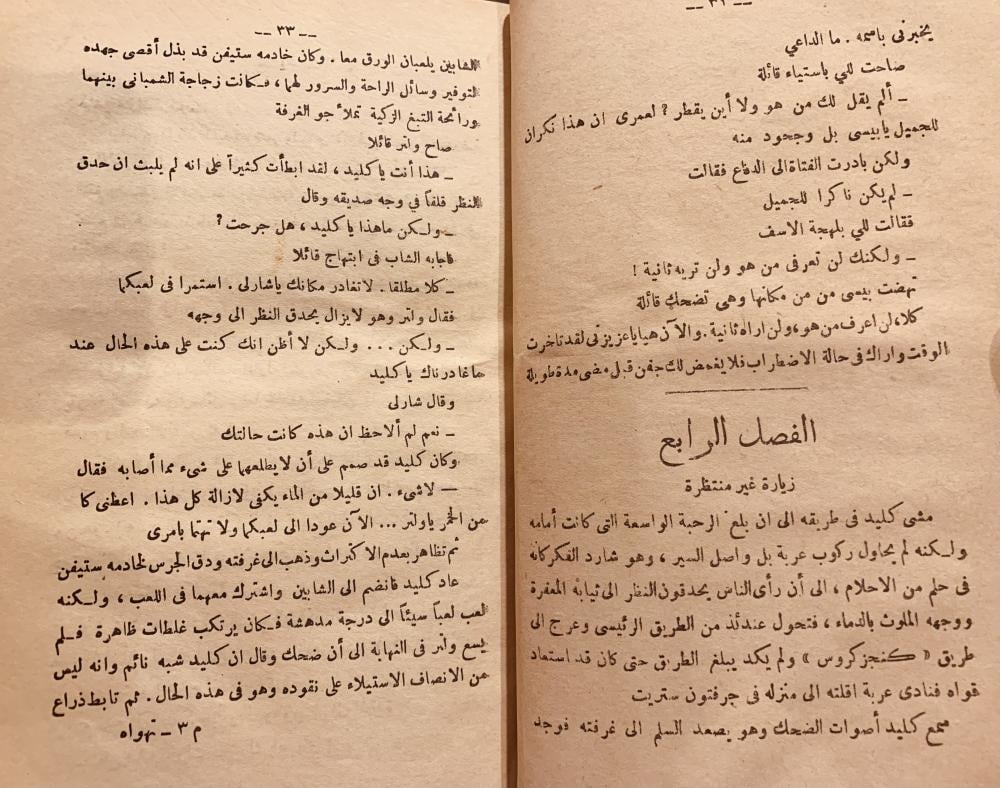 -- ٣٢ --
يخبرنى باسمه . ما الداعي
صاحت للي باستياء قائلة
ـ ألم يقل لك من هو ولا أين يقطر ? لعمرى ان هذا نكران
للجميل يابيسى بل وجحود منه
ولكن بادرت الفتاة الى الدفاع فقالت
ـ لم يكن ناكرا للجميل
فقالت للي بلهجة الاسف
ـ ولكنك لن تعرفى من هو ولن تريه ثانية !
نهضت بيسى من من مكانها وهى تضحك قائلة
كلا، لن اعرف من هو، ولن اراه ثانية . والآن هيا ياعزيزتى لقد تاخرت
الوقت واراك فى حالة الاضطراب فلا يغمض لك جفن قبل مضى مدة طويلة
الفصل الرابع
زيارة غير منتظرة
مشى كليد فى طريقه الى ان بلغ الرحبة الواسعة التى كانت أمامه
ولكنه لم يحاول ركوب عربة بل واصل السير ، وهو شارد الفكر كانه
فى حلم من الاحلام ، الى أن رأى الناس يحدقون النظر الى ثيابه المعفرة
ووجهه الملوث بالدماء ، فتحول عندئذ من الطريق الرئيسى وعرج الى
طريق « كنجز كروس » ولم يكد يبلغ الطريق حتى كان قد استعاد
قواه فنادى عربة اقلته الى منزله فى جرفتون ستريت
سمع كليد أصوات الضحك وهو يصعد السلم الى غرفته فوجد
-- ٣٣ --
الشابين يلعبان الورق معا . وكان خادمه ستيفن قد بذل أقصى جهده
لتوفير وسائل الراحة والسرور لهما ، فكانت زجاجة الشمبانى بينهما
ورائحة التبغ الزكية تملأ جو الغرفة
صاح ولتر قائلا
ـ هذا أنت يا كليد ، لقد ابطأت كثيراً على انه لم يلبث ان حدق
النظر قلقاً في وجه صديقه وقال
ـ ولكن ماهذا يا كليد ، هل جرحت ?
فاجابه الشاب فى ابتهاج قائلا
ـ كلا مطلقا . لاتغادر مكانك ياشارلى . استمرا فى لعبكما
فقال ولتر وهو لايزال يحدق النظر الى وجهه
ـ ولكن ... ولكن لا أظن انك كنت على هذه الحال عند
ماغادرناك يا كليد
وقال شارلى
ـ نعم لم ألاحظ ان هذه كانت حالتك
وكان كليد قد صمم على أن لايطلعهما على شىء مما أصابه فقال
— لاشىء . ان قليلا من الماء يكفى لازالة كل هذا . اعطنى كا
من الخمر ياولتر ... الآن عودا الى لعبكما ولا تهتما بامرى
ثم تظاهر بعدم الاكتراث وذهب الى غرفته ودق الجرس لخادمه ستيفن
عاد كليد فانضم الى الشابين واشترك معهما فى اللعب ، ولكنه
لعب لعباً سيئاً الى درجة مدهشة فكان يرتكب غلطات ظاهرة فلم
يسع ولتر فى النهاية الى أن ضحك وقال ان كليد شبه نائم وانه ليس
من الانصاف الاستيلاء على نقوده وهو فى هذه الحال . ثم تابط ذراع
م ٣ ـ تهواه